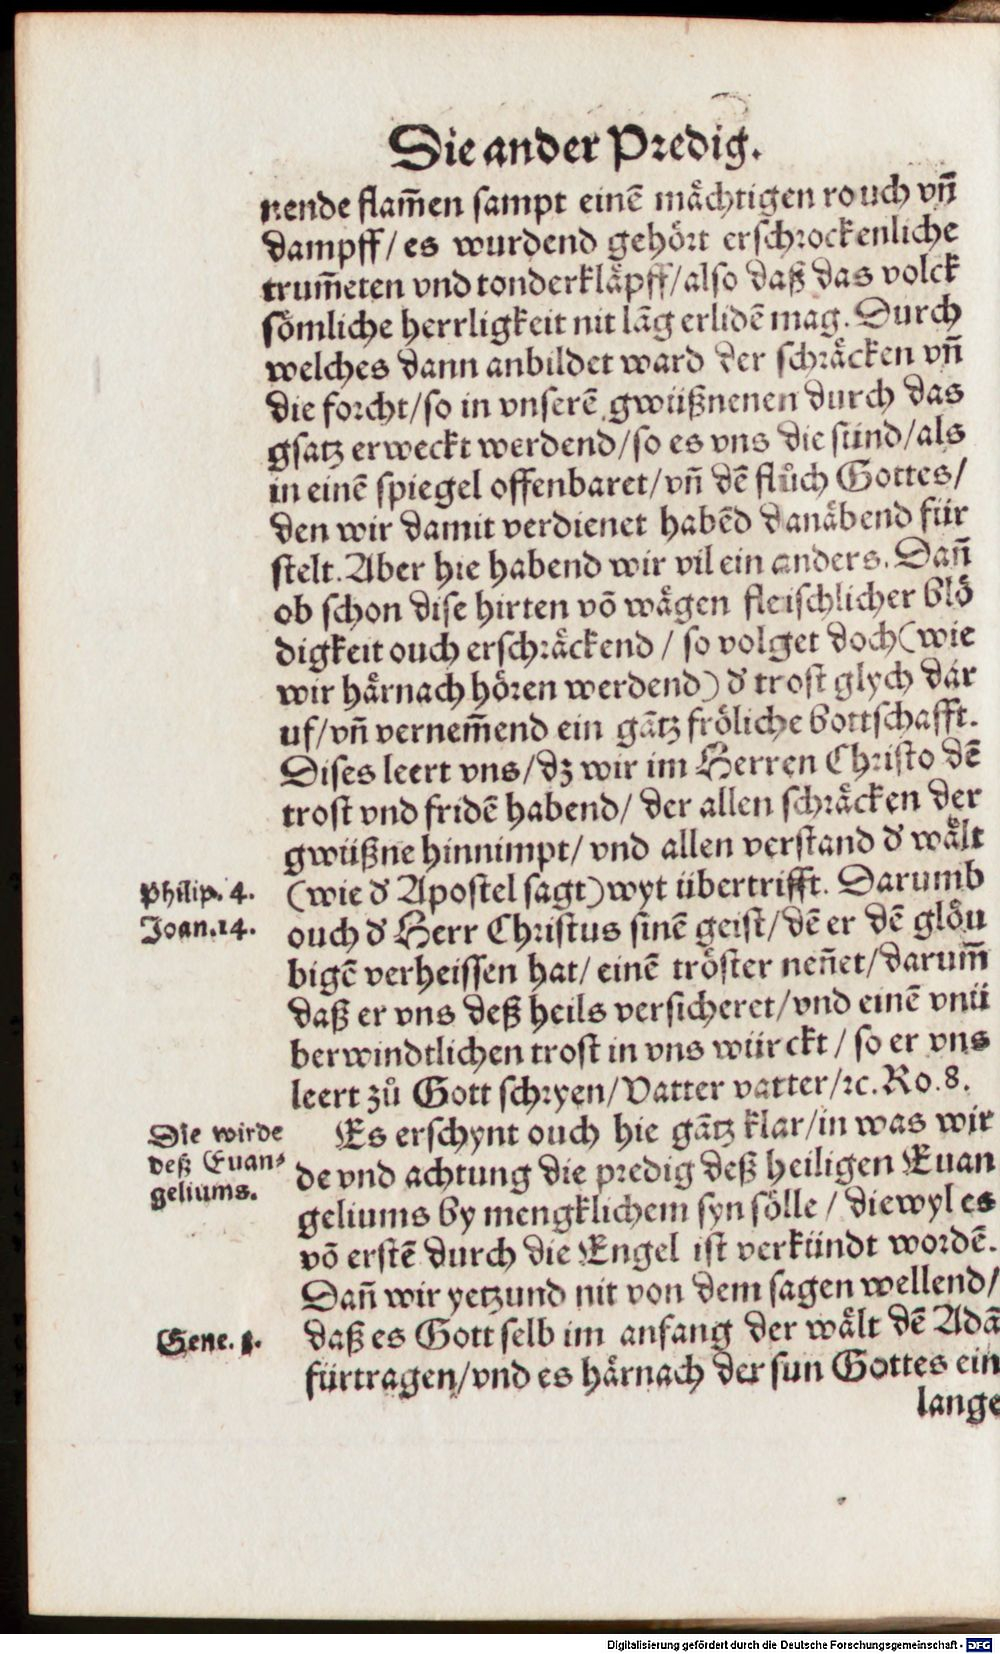 Die ander Predig.
nende flam̃en sampt einẽ mächtigen rouch vñ
dampff/ es wurdend gehört erschrockenliche
trum̃eten vnd tonderkläpff/ also daß das volck
sömliche herrligkeit nit lãg erlidẽ mag. Durch
welches dann anbildet ward der schräcken vñ
die forcht/ so in vnserẽ gwüßnenen durch das
gsatz erweckt werdend/ so es vns die sünd/ als
in einẽ spiegel offenbaret/ vñ dẽ flůch Gottes/
den wir damit verdienet habẽd danäbend für
stelt. Aber hie habend wir vil ein anders. Dañ
ob schon dise hirten võ wägen fleischlicher blö
digkeit ouch erschräckend / so volget doch (wie
wir härnach hören werdend) d' trost glych dar
uf/ vñ vernem̃end ein gãtz fröliche bottschafft.
Dises leert vns/ dz wir im Herren Christo dẽ
trost vnd fridẽ habend/ der allen schräcken der
gwüßne hinnimpt/ vnd allen verstand d' wält
Philip. 4. (wie d' Apostel sagt) wyt übertrifft. Darumb
Joan. 14. ouch d' Herr Christus sinẽ geist/ dẽ er dẽ glöu
bigẽ verheissen hat/ einẽ tröster neñet/ darum̃
daß er vns deß heils versicheret/ vnd einẽ vnü
berwindtlichen trost in vns würckt / so er vns
leert zů Gott schryen/ Vatter vatter/ ꝛc. Ro. 8.
Die wirde
deß Euan⸗
geliums.
Es erschynt ouch hie gãtz klar/ in was wir
de vnd achtung die predig deß heiligen Euan
geliums by mengklichem syn sölle / diewyl es
võ erstẽ durch die Engel ist verkündt wordẽ.
Dañ wir yetzund nit von dem sagen wellend/
Gene. 3. daß es Gott selb im anfang der wält dẽ Adã
fürtragen/ vnd es härnach der sun Gottes ein
lange
Digitalisierung gefördert durch die Deutsche Forschungsgemeinschaft - DFG